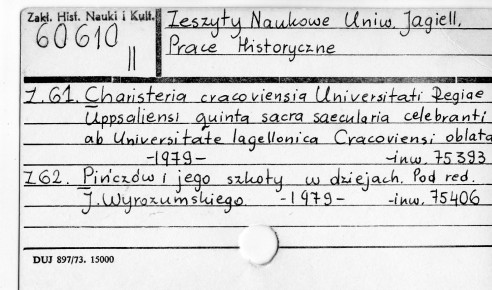 Zakł. Hist. Nauki i Kult.
60610
II
Zeszyty Naukowe Uniw. Jagiell.
Prace Historyczne
Z.61. Charisteria cracoviensia Universitati Regiae
Uppsaliensi quinta sacra saecularia celebranti
ab Universitate Iagellonica Cracoviensi oblata
-1979- -inw. 75393
Z62. Pińczów i jego szkoły w dziejach. Pod red.
J. Wyrozumskiego -1979- -inw. 75406
DUJ 897/73. 15000